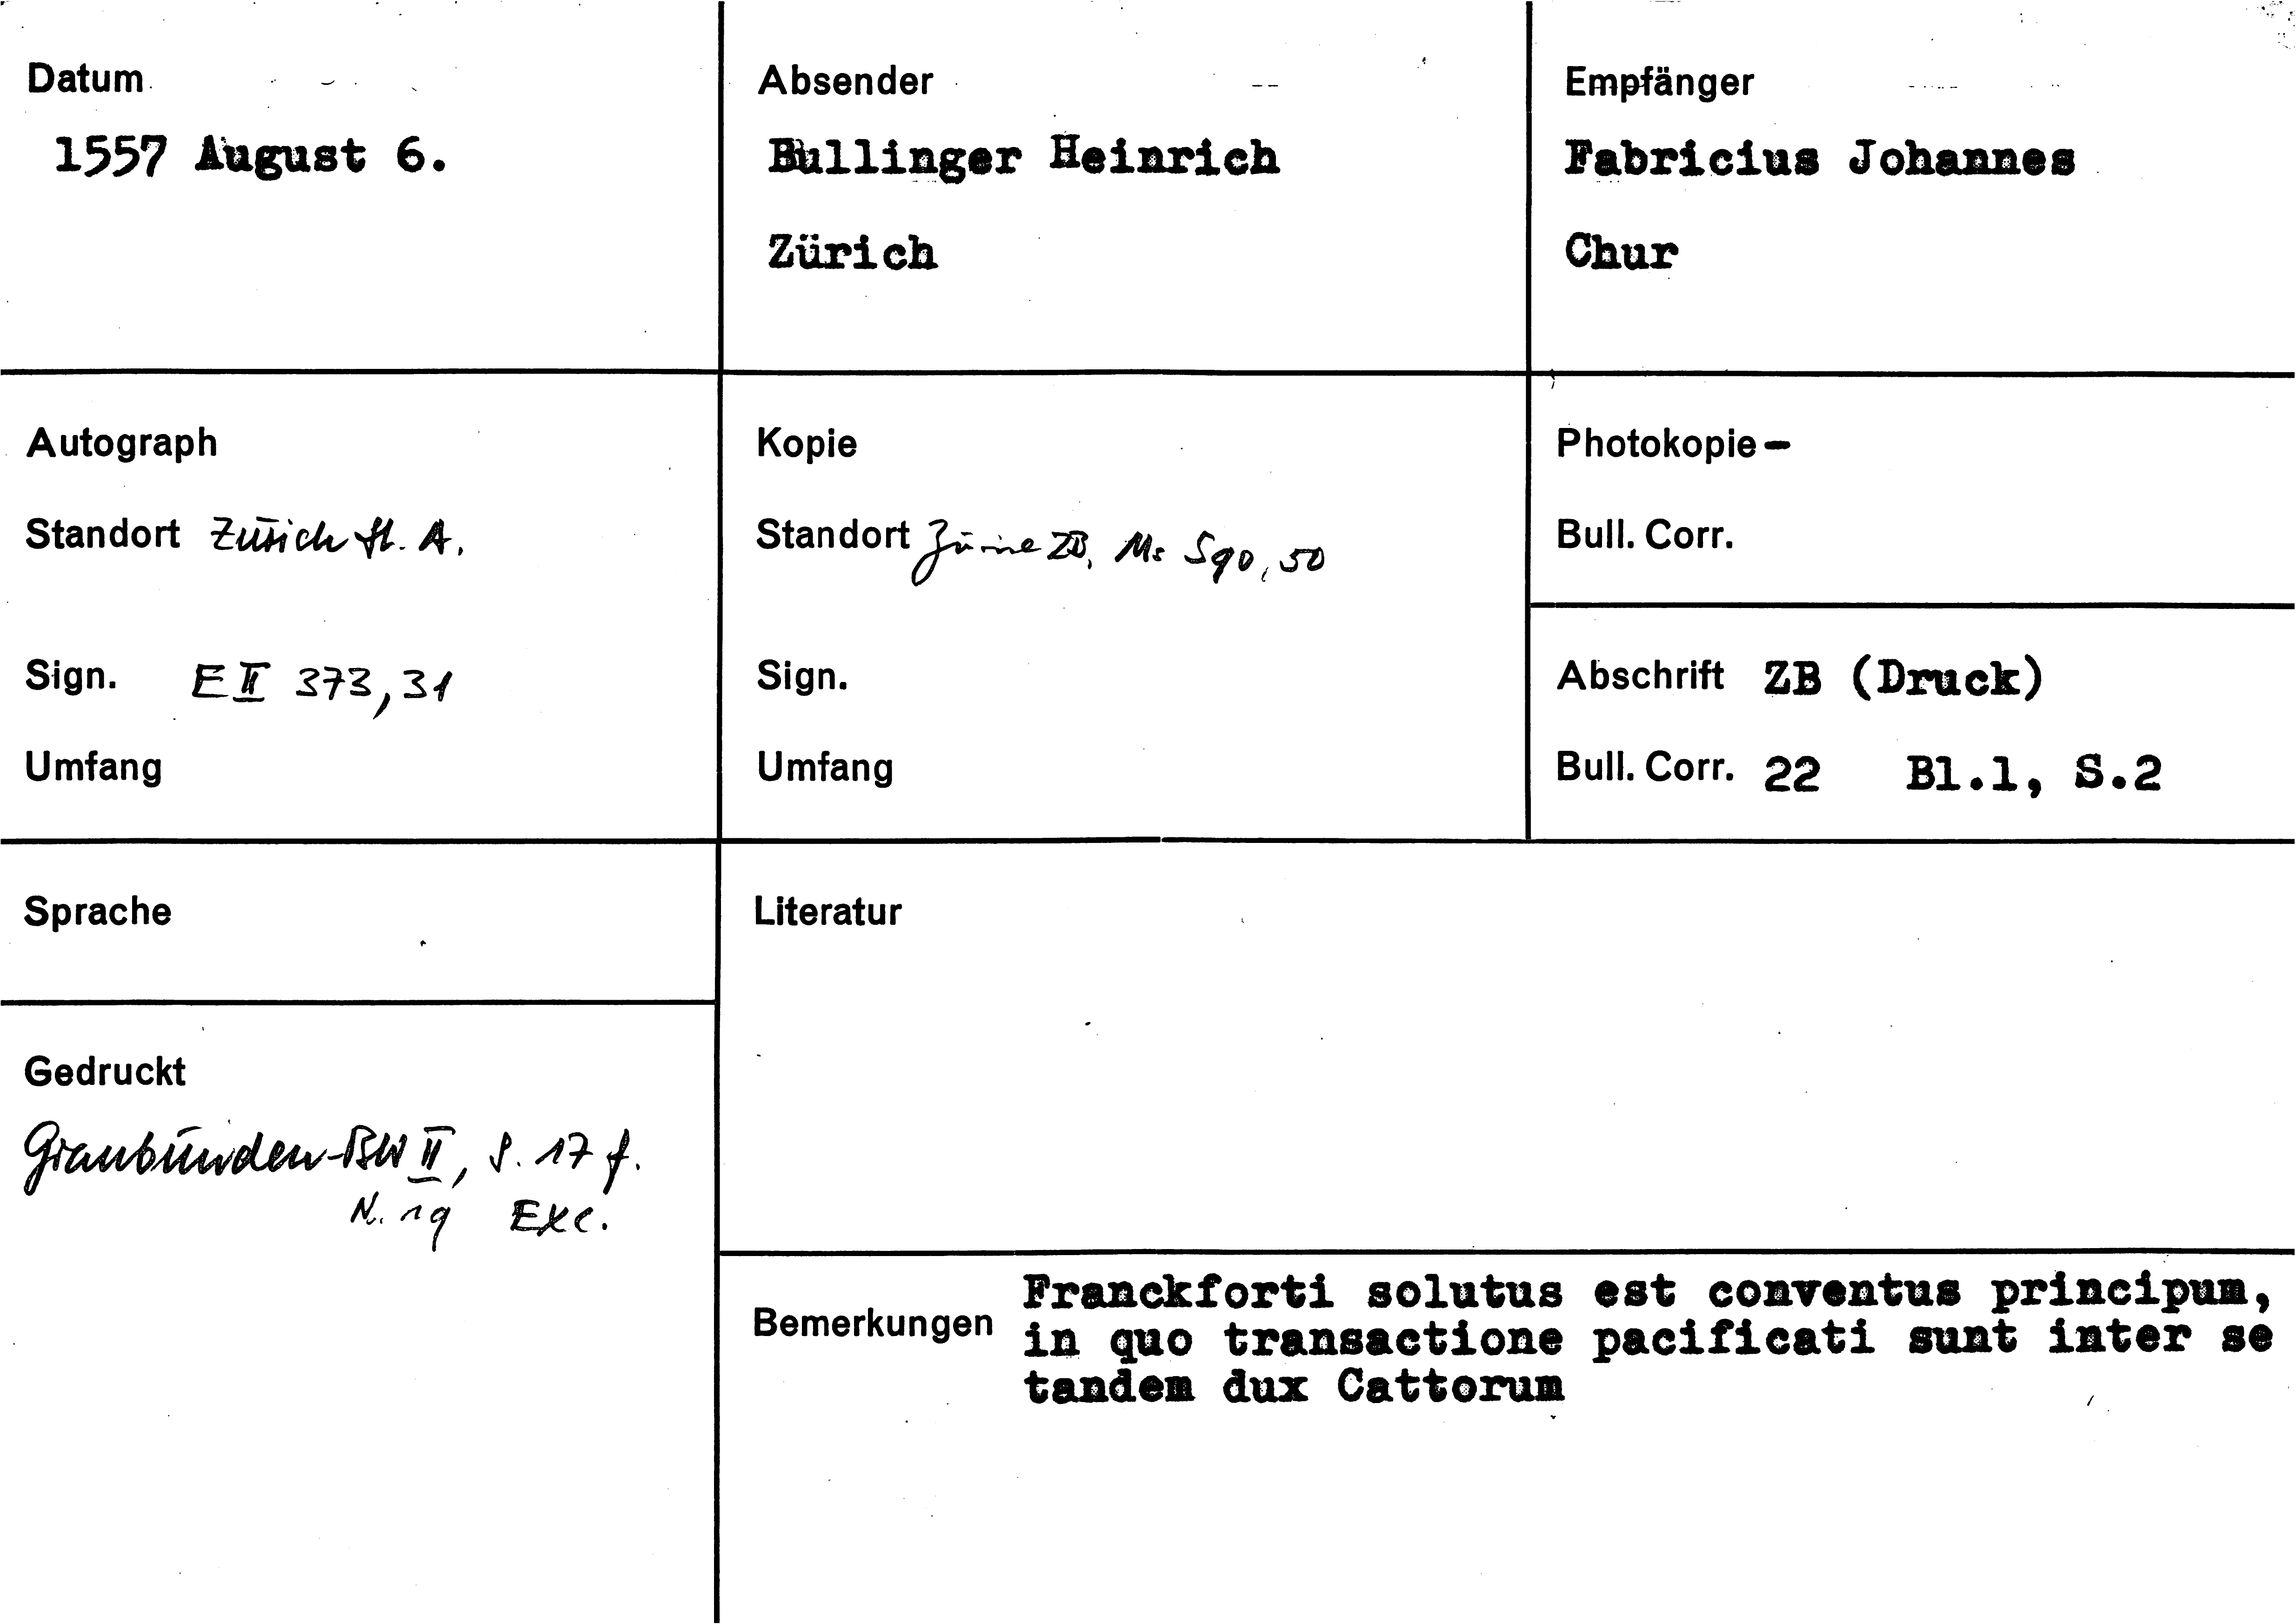 Datum
1557 August 6.
Absender
Bullinger Heinrich
Zürich
Empfänger
Fabricius Johannes
Chur
Autograph
Standort Zürich St. A.
Sign. E II 373, 31
Umfang
Kopie
Standort Zürich ZB, Ms S 90, 50
Sign.
Umfang
Photokopie -
Bull. Corr.
Abschrift ZB (Druck)
Bull. Corr. 22 Bl.1, S.2
Sprache
Literatur
Gedruckt
Graubünden-BW II, S. 17 f.
N. 19 Exc.
Bemerkungen
Franckforti solutus est conventus principum,
in quo transactione pacificati sunt inter se
tandem dux Cattorum